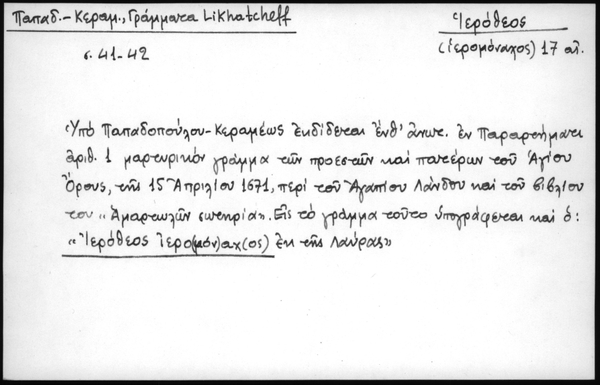 Παπαδ.-Κεραμ., Γράμματα Likhatcheff
Ἱερόθεος
(ἱερομόναχος) 17 αἰ.
σ. 41-42
Ὑπὸ Παπαδοπούλου-Κεραμέως ἐκδίδεται ἔνθ' ἄνωτ. ἐν Παραρτήματι
ἀριθ. 1 μαρτυρικὸν γράμμα τῶν προεστῶν καὶ πατέρων τοῦ Ἁγίου
Ὄρους, τῆς 15 Ἀπριλίου 1671, περὶ τοῦ Ἀγαπίου Λάνδου καὶ τοῦ βιβλίου
του «Ἁμαρτωλῶν σωτηρία». Εἰς τὸ γράμμα τοῦτο ὑπογράφεται καὶ ὁ:
«Ἱερόθεος ἱερο(μόν)αχ(ος) ἐκ τῆς Λαύρας»